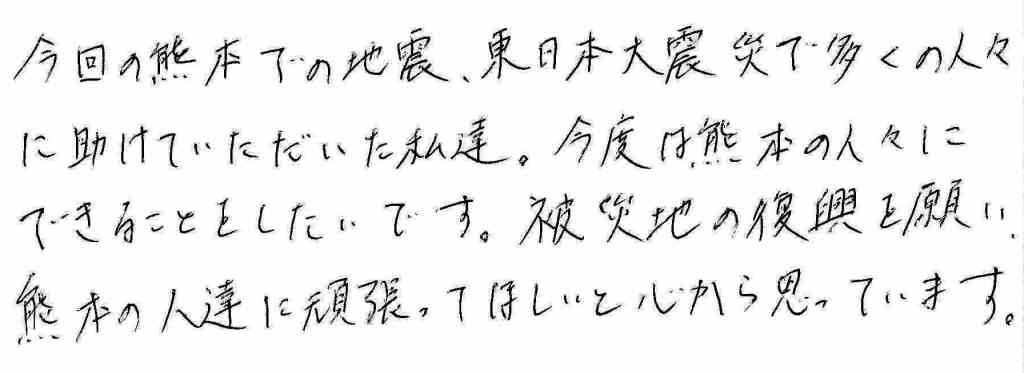 今回の熊本での地震、東日本大震災で多くの人々
に助けていただいた私達。今度は熊本の人々に
できることをしたいです。被災地の復興を願い、
熊本の人達に頑張ってほしいと心から思っています。